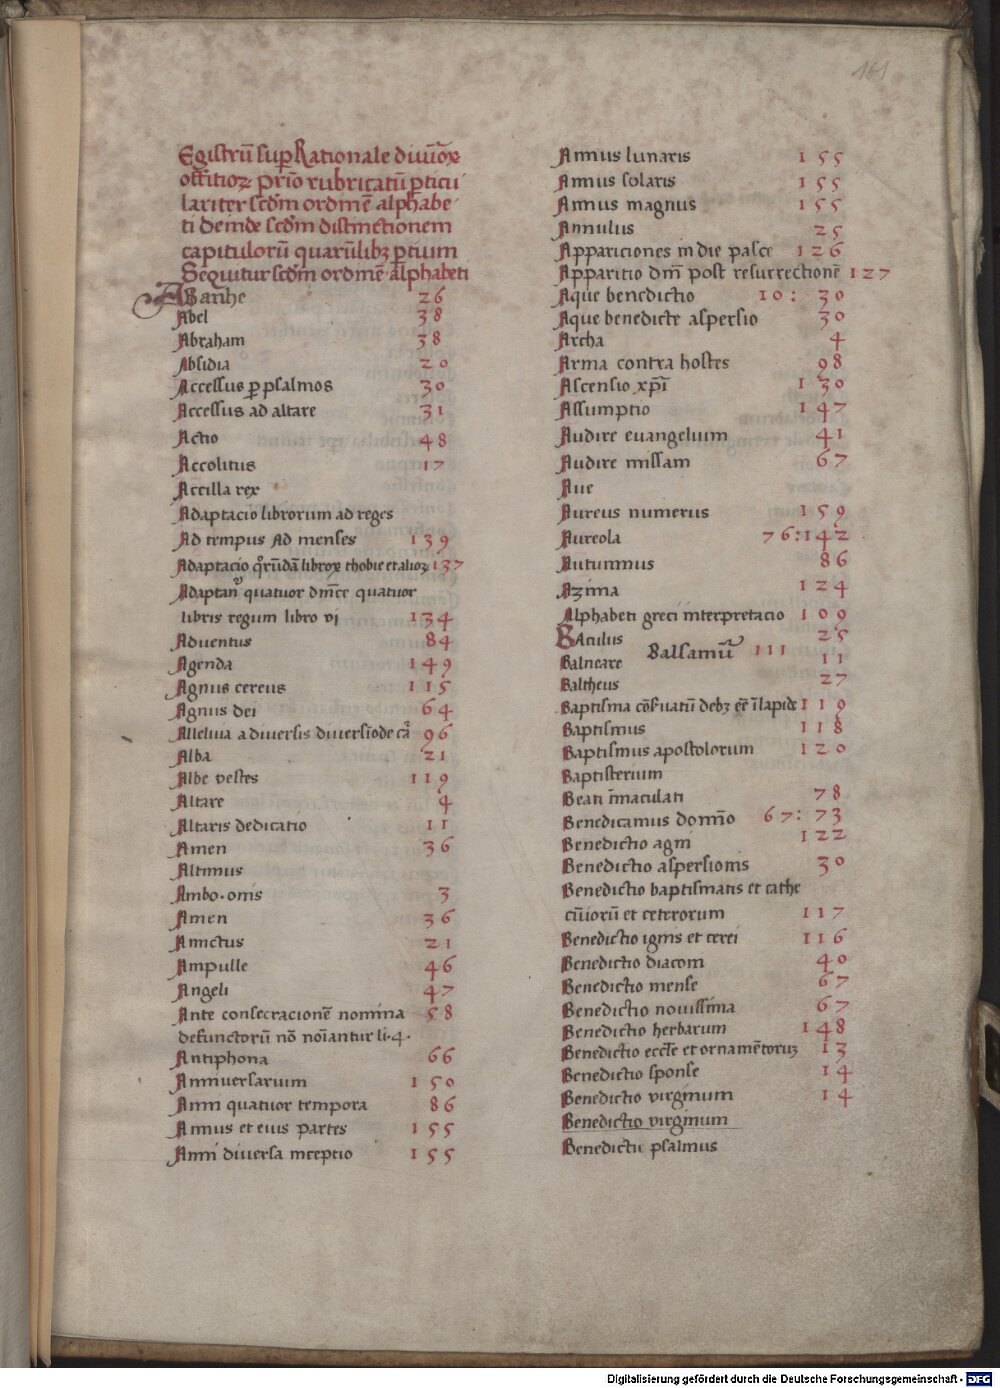 161
Egistrū sup Rationale diuiōꝝ
offitioꝝ prīo rubricatū ꝑticu
lariter scd̄m ordinē alphabe
ti deinde scd̄m distinctionem
capitulorū quarūlibꝫ ꝑtium
Sequitur scd̄m ordinē alphabeti
Abanhe 26
Abel 38
Abraham 38
Absidia 20
Accessus ꝑ psalmos 30
Accessus ad altare 31
Actio 48
Accolitus 17
Accilla rex
Adaptacio librorum ad reges
Ad tempus Ad menses 139
Adaptacio q̄rūdā libroꝝ thobie et alioꝝ 137
Adaptant quatuor dn̄ice quatuor
libris regum libro vi 134
Aduentus 84
Agenda 149
Agnus cereus 115
Agnus dei 64
Alleluia a diuersis diuersiōde cā 96
Alba 21
Albe vestes 119
Altare 4
Altaris dedicatio 11
Amen 36
Altinus
Ambo.onis 3
Amen 36
Amictus 21
Ampulle 46
Angeli 47
Ante consecracionē nomina 58
defunctorū nō noīantur li.4.
Antiphona 66
Anniuersarium 150
Anni quatuor tempora 86
Annus et eius partes 155
Anni diuersa inceptio 155
Annus lunaris 155
Annus solaris 155
Annus magnus 155
Annulus 25
Appariciones in die pasce 126
Apparitio dn̄i post resurrectionē 127
Aque benedictio 10: 30
Aque benedicte aspersio 30
Archa 4
Arma contra hostes 98
Ascensio xp̄i 130
Assumptio 147
Audire euangelium 41
Audire missam 67
Aue
Aureus numerus 159
Aureola 76:142
Autumnus 86
Azima 124
Alphabeti greci interpretacio 109
BAculus 25
Balsamū 111
Balneare 11
Baltheus 27
Baptisma cōs̄uatū debꝫ eē ī lapide 119
Baptismus 118
Baptismus apostolorum 120
Baptisterium
Beati īmaculati 78
Benedicamus domino 67: 73
Benedictio agni 122
Benedictio aspersionis 30
Benedictio baptismatis et cathe
cūiorū et ceterorum 117
Benedictio ignis et cerei 116
Benedictio diaconi 40
Benedictio mense 67
Benedictio nouissima 67
Benedictio herbarum 148
Benedictio eccl̄e et ornamētoruꝫ 13
Benedictio sponse 14
Benedictio virginum 14
Benedictio virginum
Benedicti psalmus
Digitalisierung gefördert durch die Deutsche Forschungsgemeinschaft - DFG